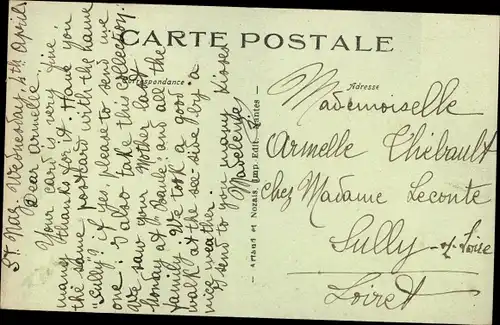 CARTE POSTALE
Correspondance
Adresse
St. Naz. Wednesday, 4th April.
Dear Armelle
Your card is very fine.
many thanks for it. Have you
the same postcard with the name
"Sully"? if yes, please to send me
one: I also take this collection.
We saw your Mother last
Sonday at la Baule: and all the
family: We took a good
walk at the see-side by a
nice weather.
I send to you many kisses
Madeleine
Artaud et Nozais, Imp. Edit. Nantes
Mademoiselle
Armelle Thébault
chez Madame Leconte
Sully s/ Loire
Loiret